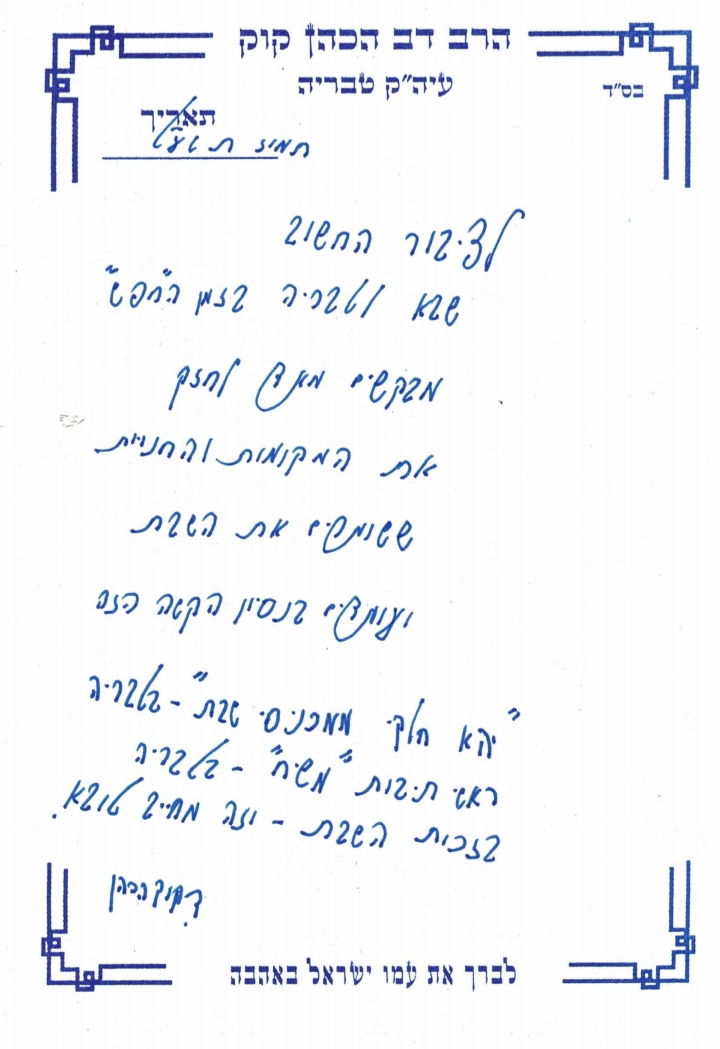 הרב דב הכהן קוק
עיה״ק טבריה
בס״ד
תאריך
תמוז תשע״ט
לציבור החשוב
שבא לטבריה בזמן ה״חפש״
מבקשים מאד לחזק
את המקומות והחנויות
ששומרים את השבת
ועומדים בנסיון הקשה הזה
״יהא חלקי ממכניסי שבת״ - בטבריה
ראשי תיבות ״משיח״ - בטבריה
בזכות השבת - וזה מחייב טובא.
דב קוק הכהן
לברך את עמו ישראל באהבה